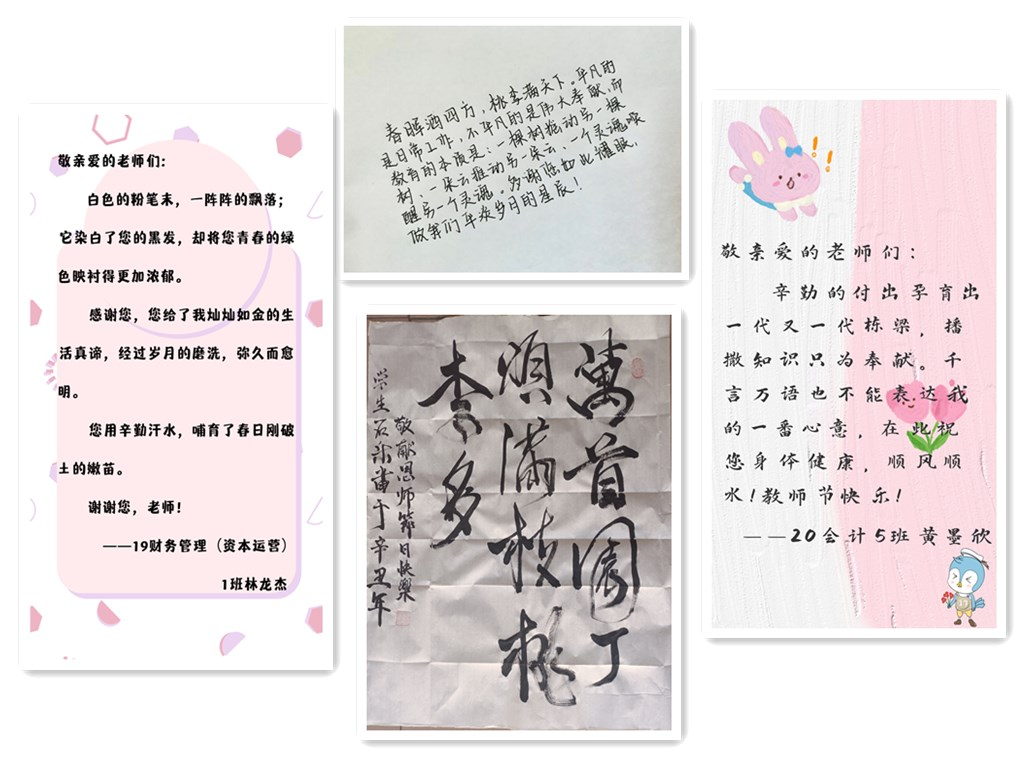 敬亲爱的老师们:
白色的粉笔末，一阵阵的飘落；
它染白了您的黑发，却将您青春的绿
色映衬得更加浓郁。
感谢您，您给了我灿灿如金的生
活真谛，经过岁月的磨洗，弥久而愈
明。
您用辛勤汗水，哺育了春日刚破
土的嫩苗。
谢谢您，老师！
——19财务管理（资本运营）
1班林龙杰
春晖洒四方，桃李满天下。平凡的
是日常工作，不平凡的是伟大奉献。而
教育的本质是：一棵树摇动另一棵
树，一朵云推动另一朵云，一个灵魂唤
醒另一个灵魂。多谢您如此耀眼，
做我们平淡岁月的星辰！
萬首園丁
頌滿枝桃
李多
敬献恩师節日快樂
学生石于辛丑年
敬亲爱的老师们：
辛勤的付出孕育出
一代又一代栋梁，播
撒知识只为奉献。千
言万语也不能表达我
的一番心意，在此祝
您身体健康，顺风顺
水！教师节快乐！
——20会计5班黄墨欣